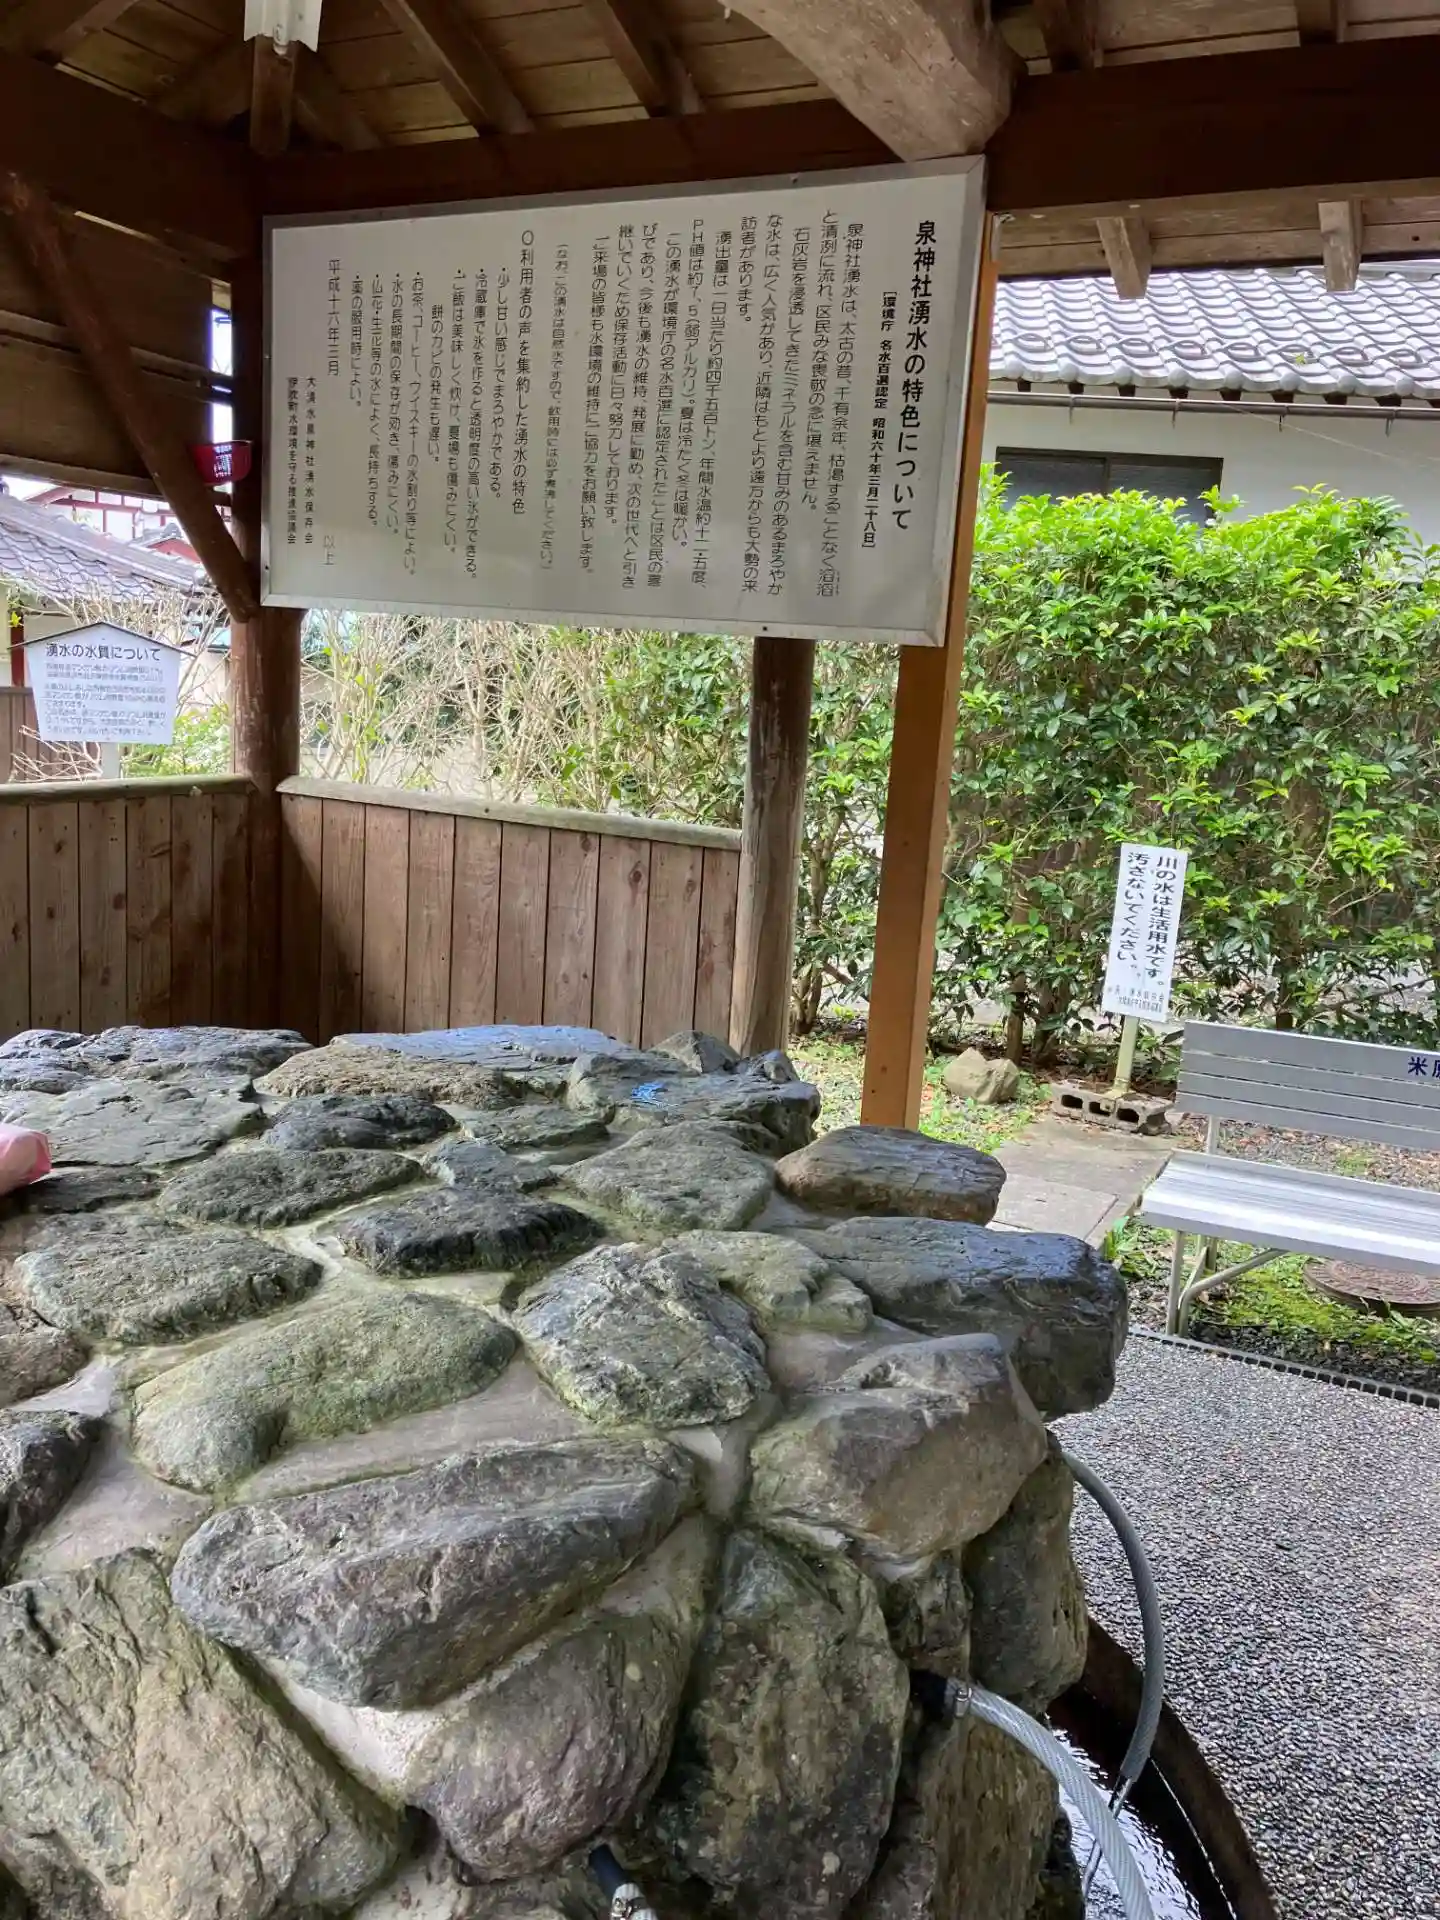 泉神社湧水の特色について
[環境庁 名水百選認定 昭和六十年三月二十八日]
泉神社湧水は、太古の昔、千有余年、枯渇することなく滔滔
と清冽に流れ、区民みな畏敬の念に堪えません。
石灰岩を浸透してきたミネラルを含む甘みのあるまろやか
な水は、広く人気があり、近隣はもとより遠方からも大勢の来
訪者があります。
湧出量は一日当たり約四千五百トン、年間水温約十一・五度、
PH値は約7.5(弱アルカリ)。夏は冷たく冬は暖かい。
この湧水が環境庁の名水百選に認定されたことは区民の喜
びであり、今後も湧水の維持、発展に勤め、次の世代へと引き
継いでいくため保存活動に日々努力しております。
ご来場の皆様も水環境の維持にご協力をお願い致します。
(なお、この湧水は自然水ですので、飲用時には必ず煮沸してください。)
〇利用者の声を集約した湧水の特色
・少し甘い感じでまろやかである。
・冷蔵庫で氷を作ると透明度の高い氷ができる。
・ご飯は美味しく炊け、夏場も傷みにくい。
餅のカビの発生も遅い。
・お茶、コーヒー、ウイスキーの水割り等によい。
・水の長期間の保存が効き、傷みにくい。
・仏花・生花等の水によく、長持ちする。
・薬の服用時によい。
以上
平成十六年三月
大清水泉神社湧水保存会
伊吹町水環境を守る推進協議会
湧水の水質について
川の水は生活用水です。
汚さないでください。
米原